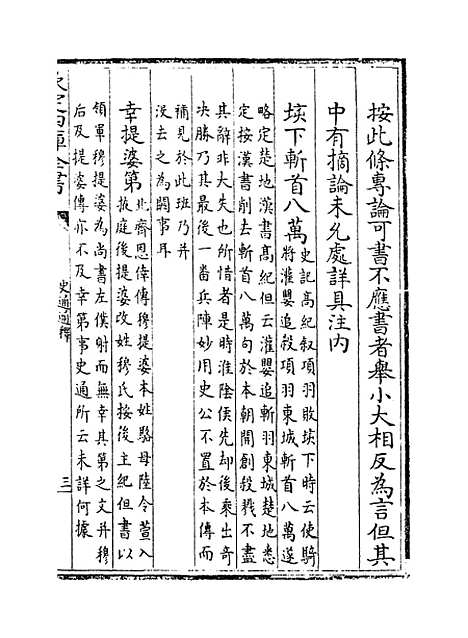 按此條專論可書不應書者舉小大相反為言但其
中有摘論未允處詳具注内
垓下斬首八萬史記髙紀叙項羽敗垓下時云使騎
將灌嬰追殺項羽東城斬首八萬遂
略定楚地漢書髙紀但云灌嬰追斬羽東城楚地悉
定按漢書削去斬首八萬句於本朝開創殺戮不盡
其辭非大失也所惜者是時淮隂侯先却後乘出奇
决勝乃其最後一畨兵陣妙用史公不置於本傳而
補見於此班乃并
沒去之為闕事耳
幸提婆第北齊恩倖傳穆提婆本姓駱母陸令萱入
掖庭後提婆改姓穆氏按後主紀但書以
領軍穆提婆為尚書左僕射而無幸其第之文并穆
后及提婆傳亦不及幸第事史通所云未詳何據
欽定四庫全書
史通通釋
三